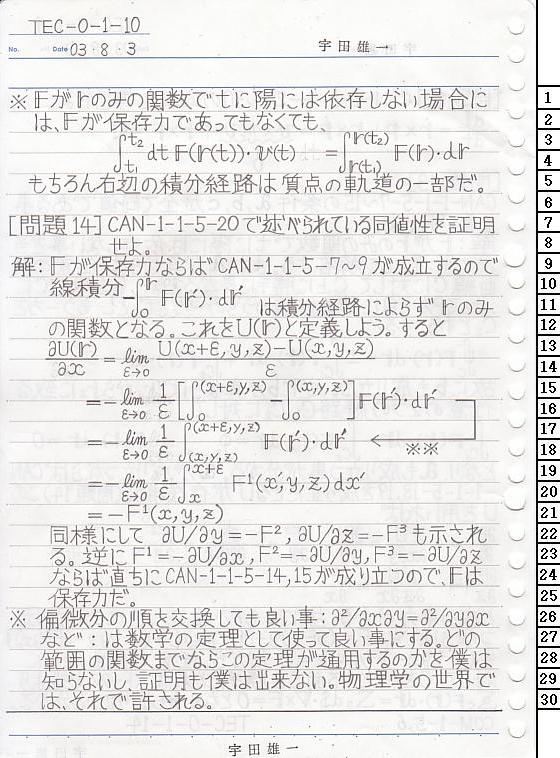 TEC-0-1-10
No.
Date 03・8・3
宇田雄一
※ 𝔽が𝕣のみの関数でtに陽には依存しない場合に
は、𝔽が保存力であってもなくても、
∫_{t₁}^{t₂} dt 𝔽(𝕣(t))・v(t) = ∫_{𝕣(t₁)}^{𝕣(t₂)} 𝔽(𝕣)・d𝕣
もちろん右辺の積分経路は質点の軌道の一部だ。
[問題14] CAN-1-1-5-20で述べられている同値性を証明
せよ。
解: 𝔽が保存力ならばCAN-1-1-5-7~9が成立するので
線積分 -∫_0^𝕣 𝔽(𝕣′)・d𝕣′ は積分経路によらず𝕣のみ
の関数となる。これをU(𝕣)と定義しよう。すると
∂U(𝕣)/∂x = lim_{ε→0} {U(x+ε,y,z)-U(x,y,z)}/ε
= -lim_{ε→0} 1/ε [∫_0^{(x+ε,y,z)} - ∫_0^{(x,y,z)}] 𝔽(𝕣′)・d𝕣′
= -lim_{ε→0} 1/ε ∫_{(x,y,z)}^{(x+ε,y,z)} 𝔽(𝕣′)・d𝕣′ ← ※※
= -lim_{ε→0} 1/ε ∫_x^{x+ε} F¹(x′,y,z)dx′
= -F¹(x,y,z)
同様にして ∂U/∂y=-F², ∂U/∂z=-F³も示され
る。逆に F¹=-∂U/∂x, F²=-∂U/∂y, F³=-∂U/∂z
ならば直ちにCAN-1-1-5-14,15が成り立つので、𝔽は
保存力だ。
※ 偏微分の順を交換しても良い事:∂²/∂x∂y=∂²/∂y∂x
など:は数学の定理として使って良い事にする。どの
範囲の関数までならこの定理が通用するのかを僕は
知らないし、証明も僕は出来ない。物理学の世界で
は、それで許される。
宇田雄一
1
2
3
4
5
6
7
8
9
10
11
12
13
14
15
16
17
18
19
20
21
22
23
24
25
26
27
28
29
30